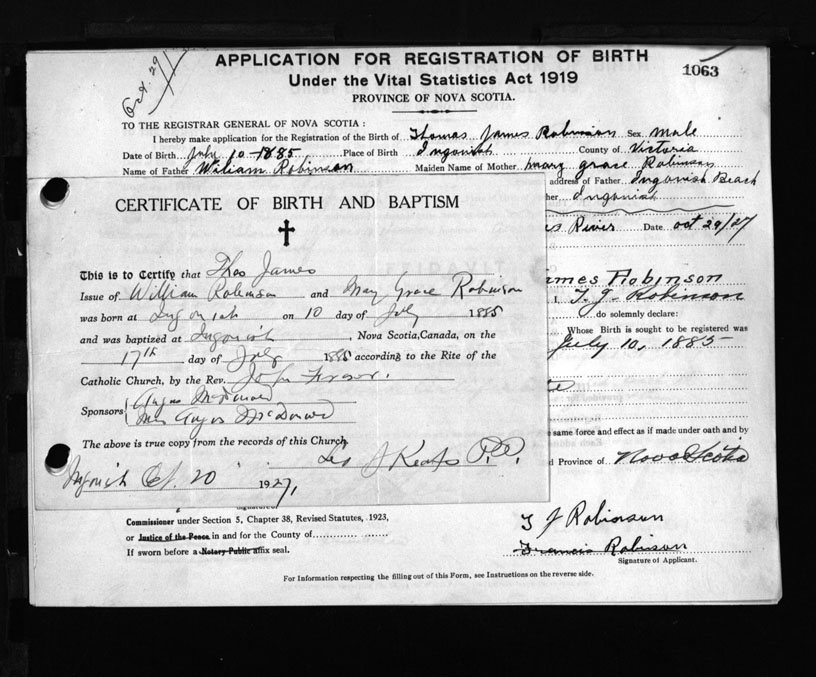 Oct. 29
APPLICATION FOR REGISTRATION OF BIRTH
1063
Under the Vital Statistics Act 1919
PROVINCE OF NOVA SCOTIA.
TO THE REGISTRAR GENERAL OF NOVA SCOTIA :
I hereby make application for the Registration of the Birth of Thomas James Robinson Sex male
Date of Birth July 10 1885 Place of Birth Ingonish County of Victoria
Name of Father William Robinson Maiden Name of Mother Mary Grace Robinson
address of Father Ingonish Beach
her Ingonish
River Date Oct 29/27
ames Robinson
I, T. J. Robinson
do solemnly declare:
Whose Birth is sought to be registered was
July 10, 1885
same force and effect as if made under oath and by
d Province of Nova Scotia
CERTIFICATE OF BIRTH AND BAPTISM
This is to Certify that Thos James
Issue of William Robinson and Mary Grace Robinson
was born at Ingonish on 10 day of July 1885
and was baptized at Ingonish, Nova Scotia, Canada, on the
17th day of July 1885 according to the Rite of the
Catholic Church, by the Rev. John Fraser.
Sponsors Angus McDonald
Mrs Angus McDonald
The above is true copy from the records of this Church.
P.P.
Ingonish Oct. 20 1927,
Commissioner under Section 5, Chapter 38, Revised Statutes, 1923,
or Justice of the Peace in and for the County of
If sworn before a Notary Public affix seal.
T J Robinson
Francis Robinson
Signature of Applicant.
For Information respecting the filling out of this Form, see Instructions on the reverse side.